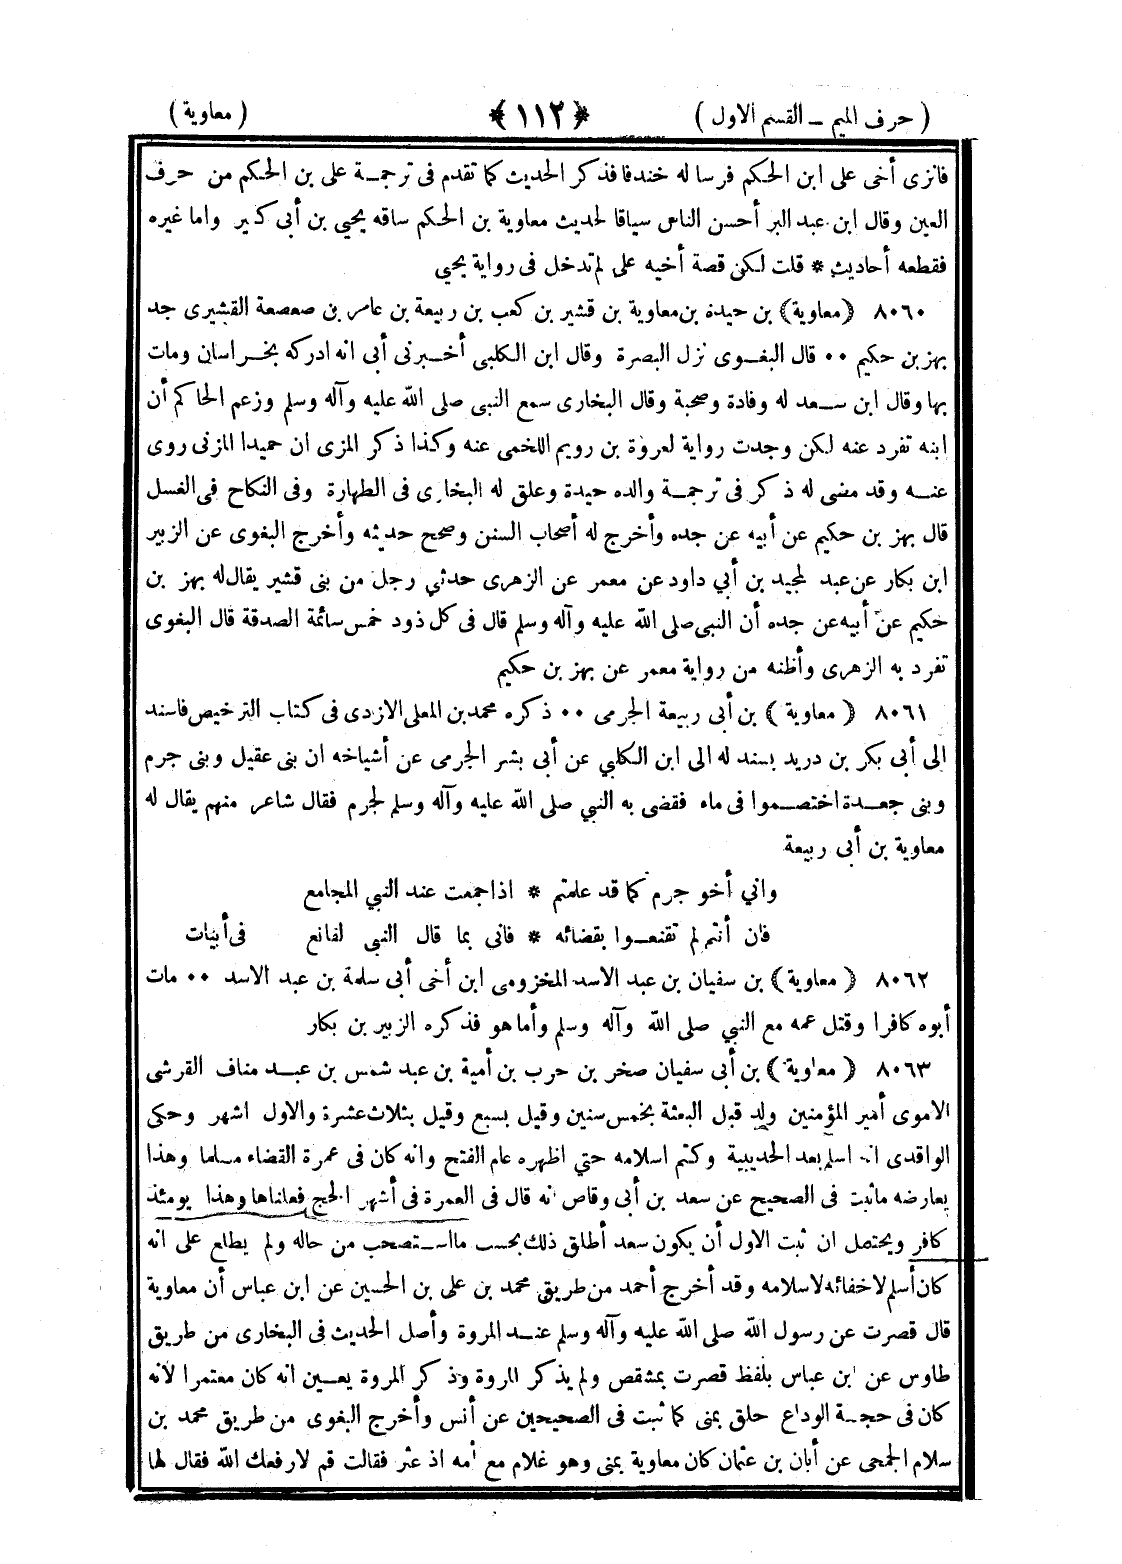 ( حرف الميم ــ القسم الاول ) ﴿ ١١٢ ﴾ ( معاوية )
فانزى أخى على ابن الحكم فرسا له خندقا فذكر الحديث كما تقدم فى ترجمة على بن الحكم من حرف
العين وقال ابن عبد البر أحسن الناس سياقا لحديث معاوية بن الحكم ساقه يحيى بن أبى كثير واما غيره
فقطعه أحاديث * قلت لكن قصة أخيه على لم تدخل فى رواية يحيى
٨٠٦٠ ( معاوية ) بن حيدة بن معاوية بن قشير بن كعب بن ربيعة بن عامر بن صعصعة القشيرى جد
بهز بن حكيم ٠٠ قال البغوى نزل البصرة وقال ابن الكلبى أخبرنى أبى انه ادركه بخراسان ومات
بها وقال ابن سعد له وفادة وصحبة وقال البخارى سمع النبى صلى الله عليه وآله وسلم وزعم الحاكم أن
ابنه تفرد عنه لكن وجدت رواية لعروة بن رويم اللخمى عنه وكذا ذكر المزى ان حميدا المزنى روى
عنه وقد مضى له ذكر فى ترجمة والده حيدة وعلق له البخارى فى الطهارة وفى النكاح فى الغسل
قال بهز بن حكيم عن أبيه عن جده وأخرج له أصحاب السنن وصحح حديثه وأخرج البغوى عن الزبير
ابن بكار عن عبد لمجيد بن أبي داود عن معمر عن الزهرى حدثني رجل من بنى قشير يقال له بهز بن
حكيم عن أبيه عن جده أن النبى صلى الله عليه وآله وسلم قال فى كل ذود خمس سائمة الصدقة قال البغوى
تفرد به الزهرى وأظنه من رواية معمر عن بهز بن حكيم
٨٠٦١ ( معاوية ) بن أبى ربيعة الجرمى ٠٠ ذكره محمد بن المعلى الازدى فى كتاب الترخيص فاسند
الى أبى بكر بن دريد بسند له الى ابن الكلبي عن أبى بشر الجرمى عن أشياخه ان بنى عقيل وبنى جرم
وبنى جعدة اختصموا فى ماء فقضى به النبي صلى الله عليه وآله وسلم لجرم فقال شاعر منهم يقال له
معاوية بن أبى ربيعة
واني أخو جرم كما قد علمتم * اذا جمعت عند النبي المجامع
فان أنتم لم تقنعوا بقضائه * فاني بما قال النبى لقانع فى أبيات
٨٠٦٢ ( معاوية ) بن سفيان بن عبد الاسد المخزومى ابن أخى أبى سلمة بن عبد الاسد ٠٠ مات
أبوه كافرا وقتل عمه مع النبي صلى الله وآله وسلم وأما هو فذكره الزبير بن بكار
٨٠٦٣ ( معاوية ) بن أبى سفيان صخر بن حرب بن أمية بن عبد شمس بن عبد مناف القرشى
الاموى أمير المؤمنين ولد قبل البعثة بخمس سنين وقيل بسبع وقيل بثلاث عشرة والاول اشهر وحكى
الواقدى انه اسلم بعد الحديبية وكتم اسلامه حتي اظهره عام الفتح وانه كان فى عمرة القضاء مسلما وهذا
يعارضه ماثبت فى الصحيح عن سعد بن أبى وقاص انه قال فى العمرة فى أشهر الحج فعلناها وهذا يومئذ
كافر ويحتمل ان ثبت الاول أن يكون سعد أطلق ذلك بحسب مااستصحب من حاله ولم يطلع على انه
كان أسلم لاخفائه لاسلامه وقد أخرج أحمد من طريق محمد بن على بن الحسين عن ابن عباس أن معاوية
قال قصرت عن رسول الله صلى الله عليه وآله وسلم عند المروة وأصل الحديث فى البخارى من طريق
طاوس عن ابن عباس بلفظ قصرت بمشقص ولم يذكر المروة وذكر المروة يعين انه كان معتمرا لأنه
كان فى حجة الوداع حلق بمنى كما ثبت فى الصحيحين عن أنس وأخرج البغوى من طريق محمد بن
سلام الجمحى عن أبان بن عثمان كان معاوية بمنى وهو غلام مع أمه اذ عثر فقالت قم لارفعك الله فقال لها